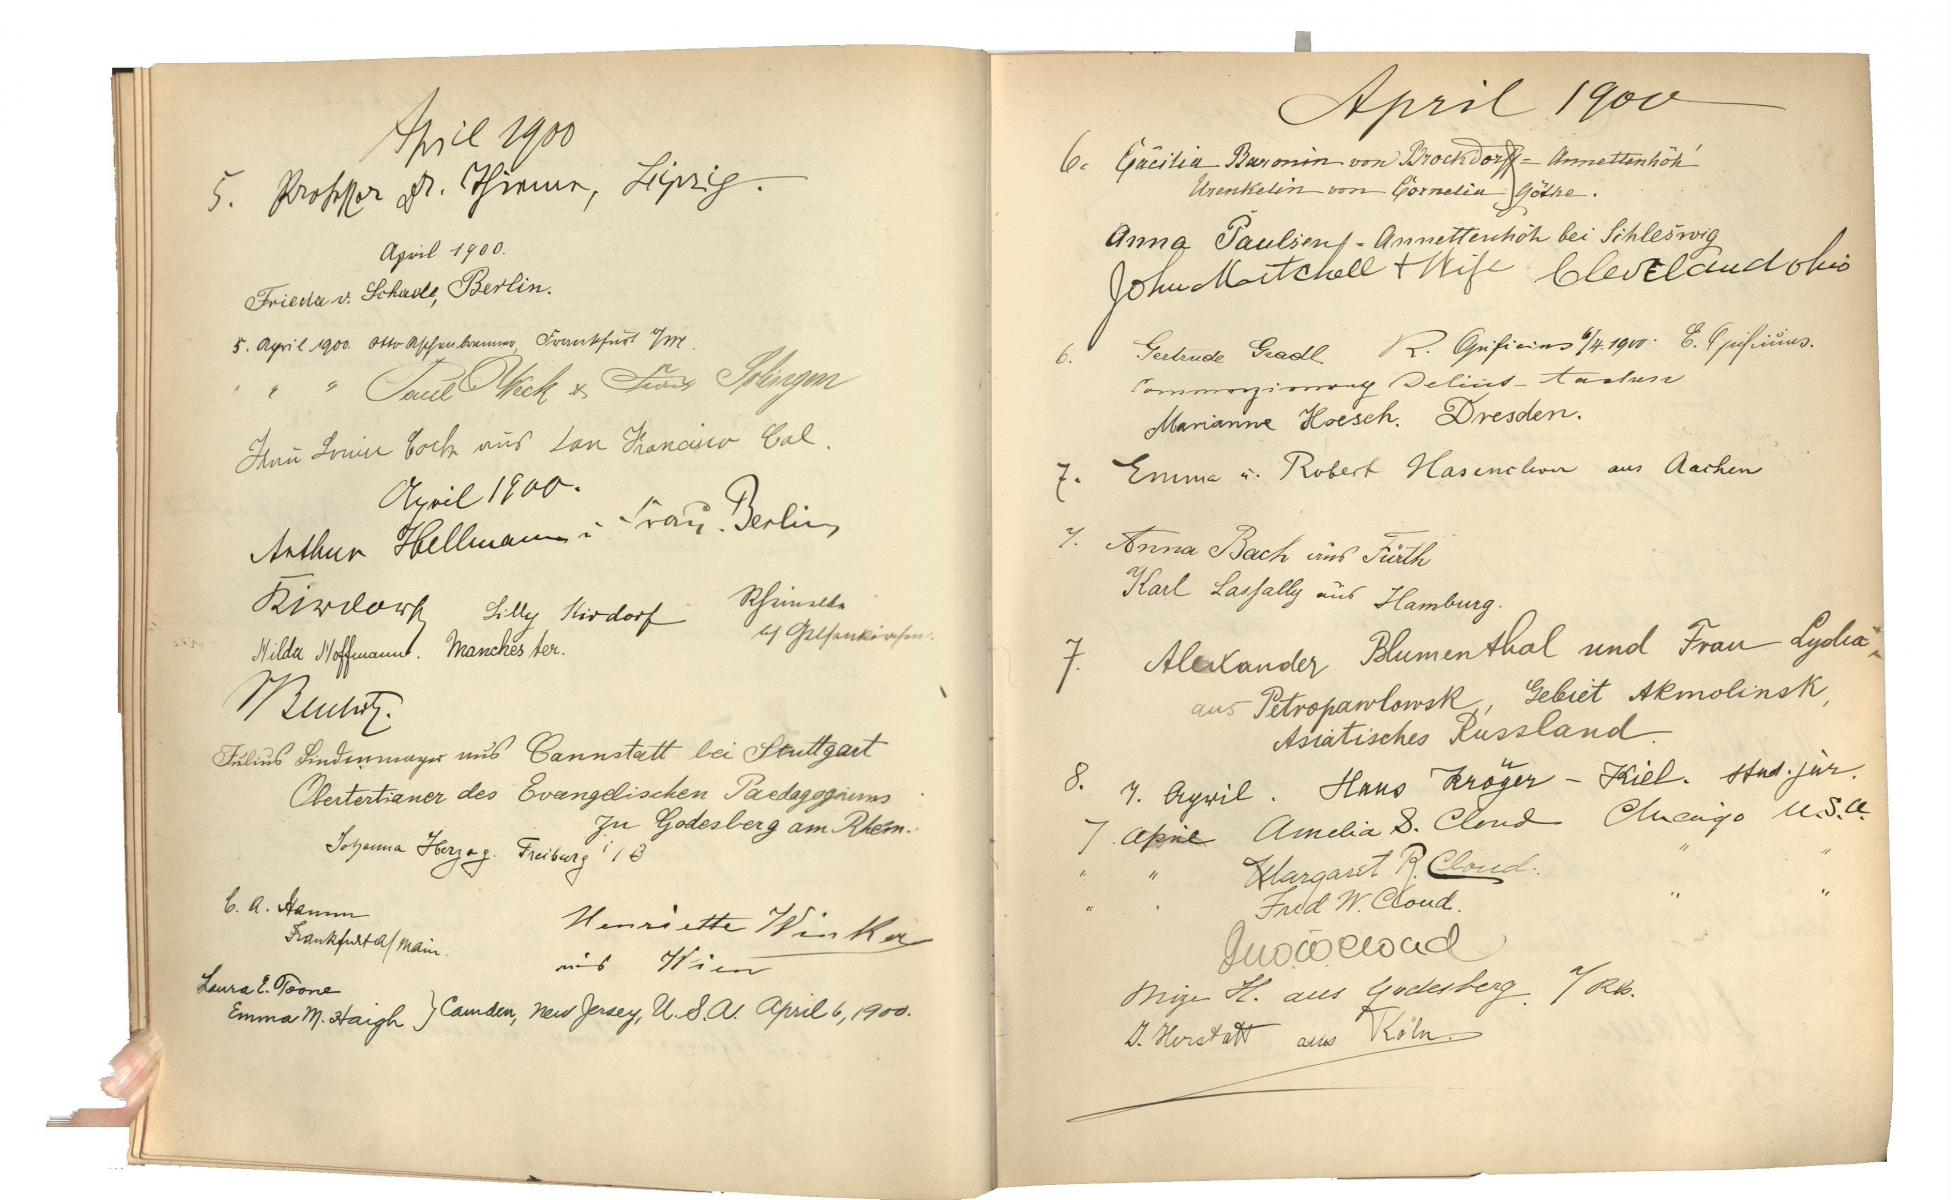 April 1900
5. Professor Dr. Thieme, Leipzig.
April 1900.
Frieda v. Schade, Berlin.
5. April 1900. Otto Aschenbrenner, Frankfurt a/M.
" " " Paul & Frau Solingen
Frau Louise Koch aus San Francisco Cal.
April 1900.
Arthur Hellmann u. Frau. Berlin
Kirdorf Lilly Kirdorf Rheinelbe
b/ Gelsenkirchen.
Hilda Hoffmann. Manchester.
Julius Lindenmayer aus Cannstatt bei Stuttgart
Obertertianer des Evangelischen Paedagogiums
zu Godesberg am Rhein.
Johanna Herzog. Freiburg i/B
C. A. Hamm
Frankfurt a/Main.
Henriette Winkler
aus Wien
Laura E. Toone
Emma M. Haigh } Camden, New Jersey, U.S.A. April 6, 1900.
April 1900
6. Cäcilia Baronin von Brockdorff = Annettenhöh
Urenkelin von Cornelia Göthe.
Anna Paulsen - Annettenhöh bei Schleswig
John Mitchell + Wife Cleveland Ohio
6. Gertrude Gradl R. 6/4.1900. E.
Delius - Aachen
Marianne Hoesch. Dresden.
7. Emma u. Robert Hasenclever aus Aachen
7. Anna Bach aus Fürth
Karl Lassally aus Hamburg.
7. Alexander Blumenthal und Frau Lydia
aus Petropawlowsk, Gebiet Akmolinsk,
Asiatisches Russland.
8. 7. April. Hans Kröger - Kiel. stud. jur.
7 April Amelia S. Cloud Chicago U.S.A.
" " Margaret R. Cloud. " "
" " Fred W. Cloud. " "
Cloud
H. aus Godesberg a/Rh.
J. Herstatt aus Köln.